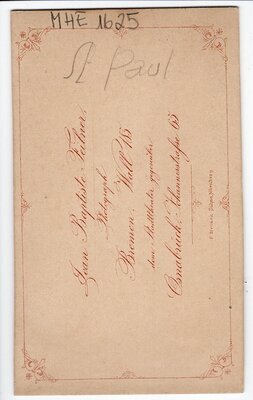 MHE 1625
St Paul
Jean Baptiste Feilner,
Photograph
Bremen, Wall 185
dem Stadttheater gegenüber
Osnabrück, Johannisstraße 65